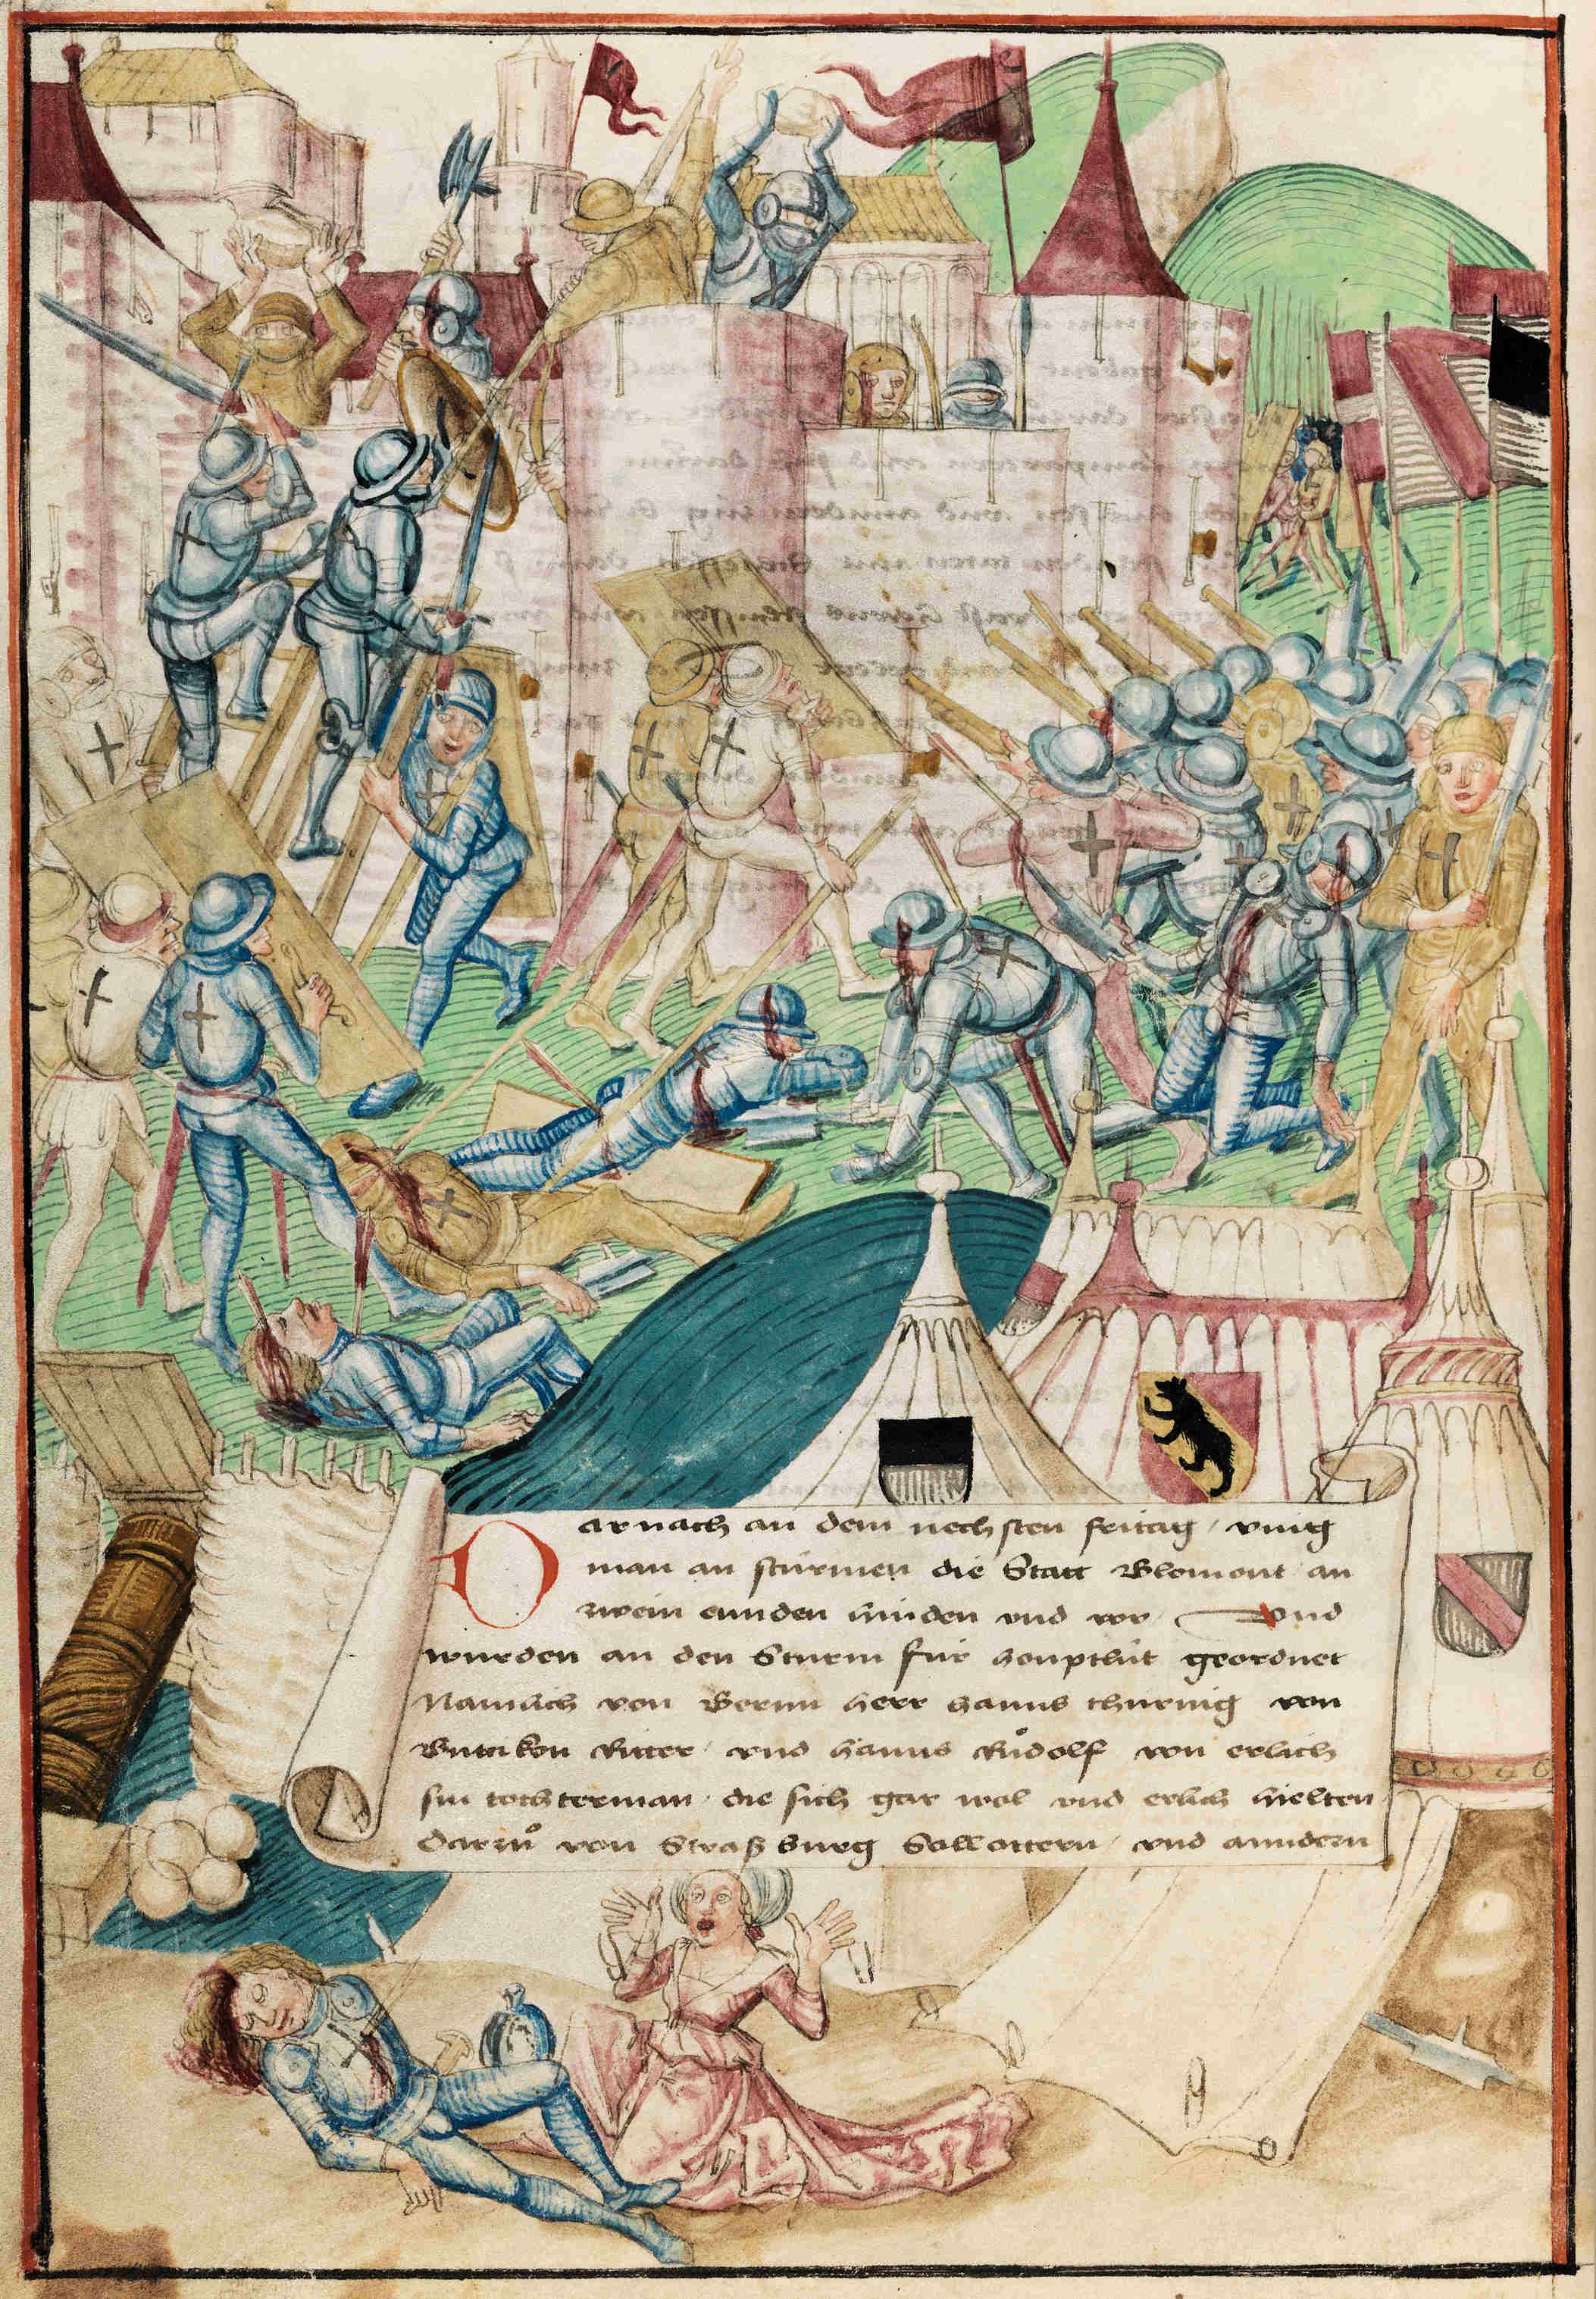 Darnach an dem nechsten fritag / vieng
man an stürmen die Statt Blomont an
zwein ennden hinden und vor / Und
wurden an den Sturm für houptlüt geordnet
Namlich von Bernn herr Hanns thüring von
Buttikon Ritter / und Hanns Růdolf von erlach
sin tochterman / die sich gar wol und erlich hielten
Darzů von Straßburg Sollottern / und anndern